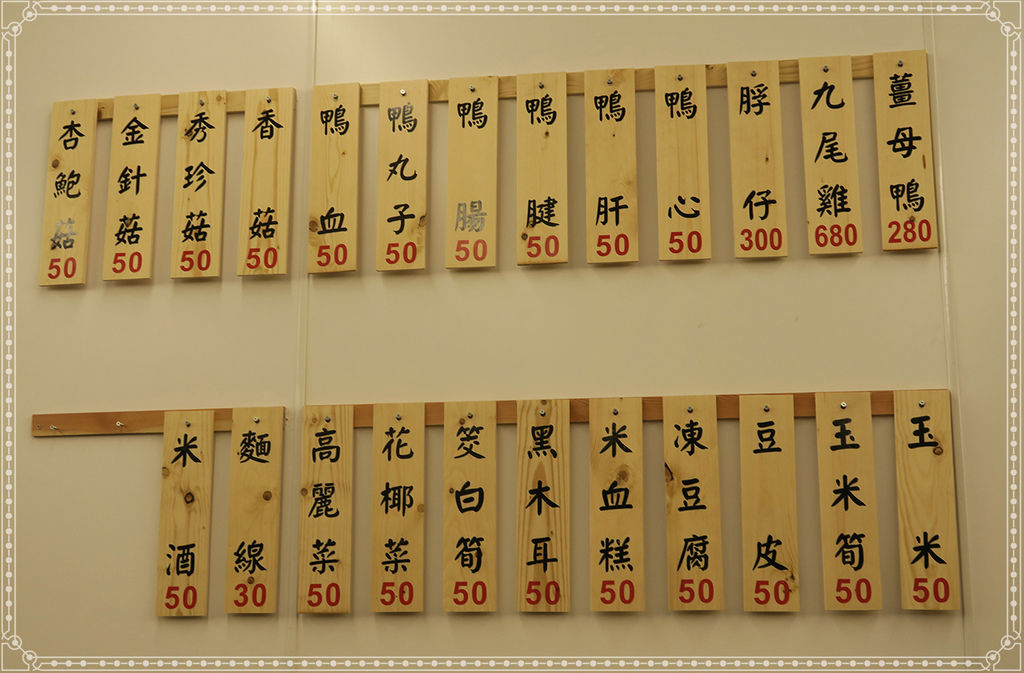 薑母鴨 280
九尾雞 680
脬仔 300
鴨心 50
鴨肝 50
鴨腱 50
鴨腸 50
鴨丸子 50
鴨血 50
香菇 50
秀珍菇 50
金針菇 50
杏鮑菇 50
玉米 50
玉米筍 50
豆皮 50
凍豆腐 50
米血糕 50
黑木耳 50
筊白筍 50
花椰菜 50
高麗菜 50
麵線 30
米酒 50